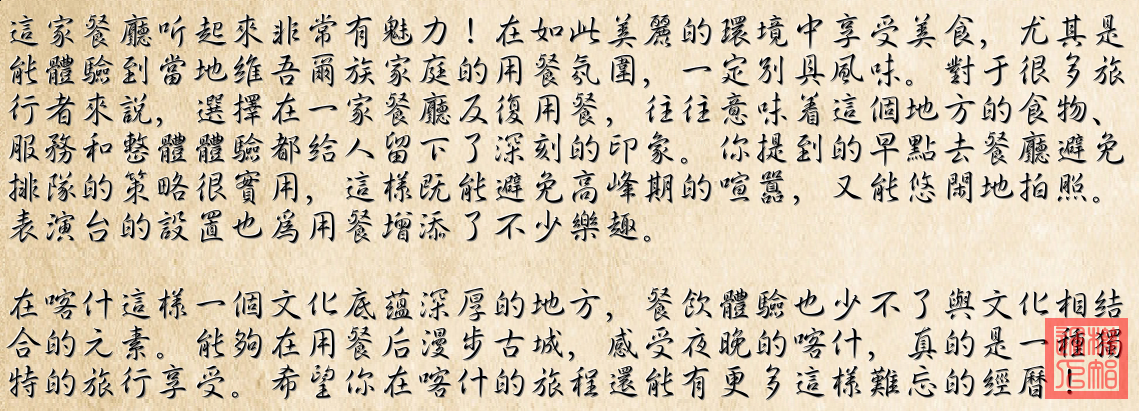 這家餐廳听起來非常有魅力！在如此美麗的環境中享受美食，尤其是
能體驗到當地維吾爾族家庭的用餐氛圍，一定別具風味。對于很多旅
行者來說，選擇在一家餐廳反復用餐，往往意味着這個地方的食物、
服務和整體體驗都給人留下了深刻的印象。你提到的早點去餐廳避免
排隊的策略很實用，這樣既能避免高峰期的喧囂，又能悠閑地拍照。
表演台的設置也爲用餐增添了不少樂趣。
在喀什這樣一個文化底蘊深厚的地方，餐飲體驗也少不了與文化相結
合的元素。能夠在用餐后漫步古城，感受夜晚的喀什，真的是一種獨
特的旅行享受。希望你在喀什的旅程還能有更多這樣難忘的經曆！